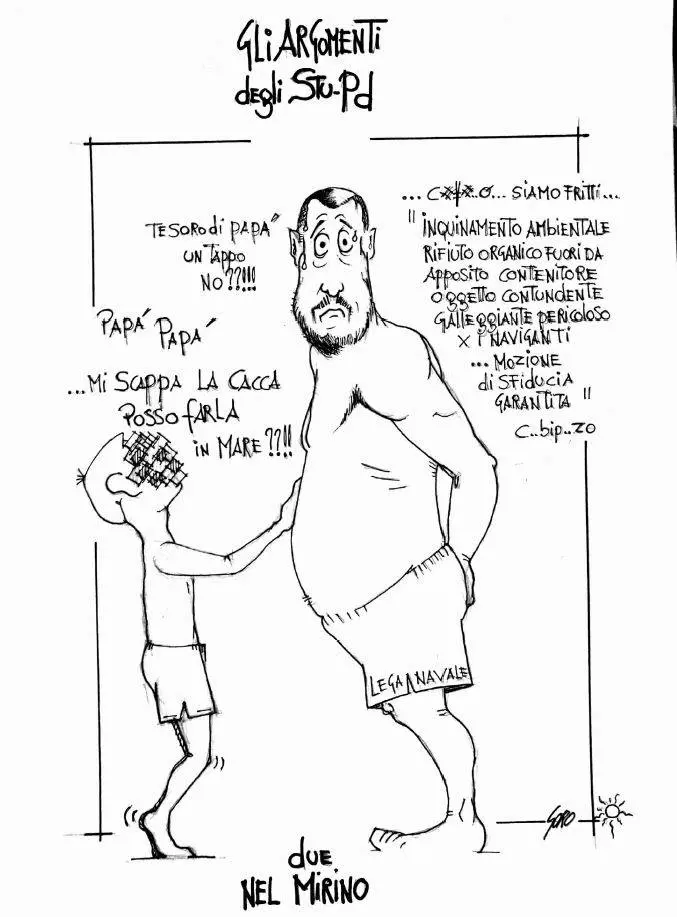 GLI ARGOMENTI
degli STU-Pd
TESORO di PAPA´
UN TAPPO
NO??!!!
PAPA´ PAPA´
...MI SCAPPA LA CACCA
POSSO FARLA
IN MARE ??!!
... C****O... SIAMO FRITTI...
"INQUINAMENTO AMBIENTALE
RIFIUTO ORGANICO FUORI DA
APPOSITO CONTENITORE
OGGETTO CONTUNDENTE
GALLEGGIANTE PERICOLOSO
X I NAVIGANTI
... MOZIONE
di SFIDUCIA
GARANTITA"
C..bip..ZO
LEGA NAVALE
due
NEL MIRINO